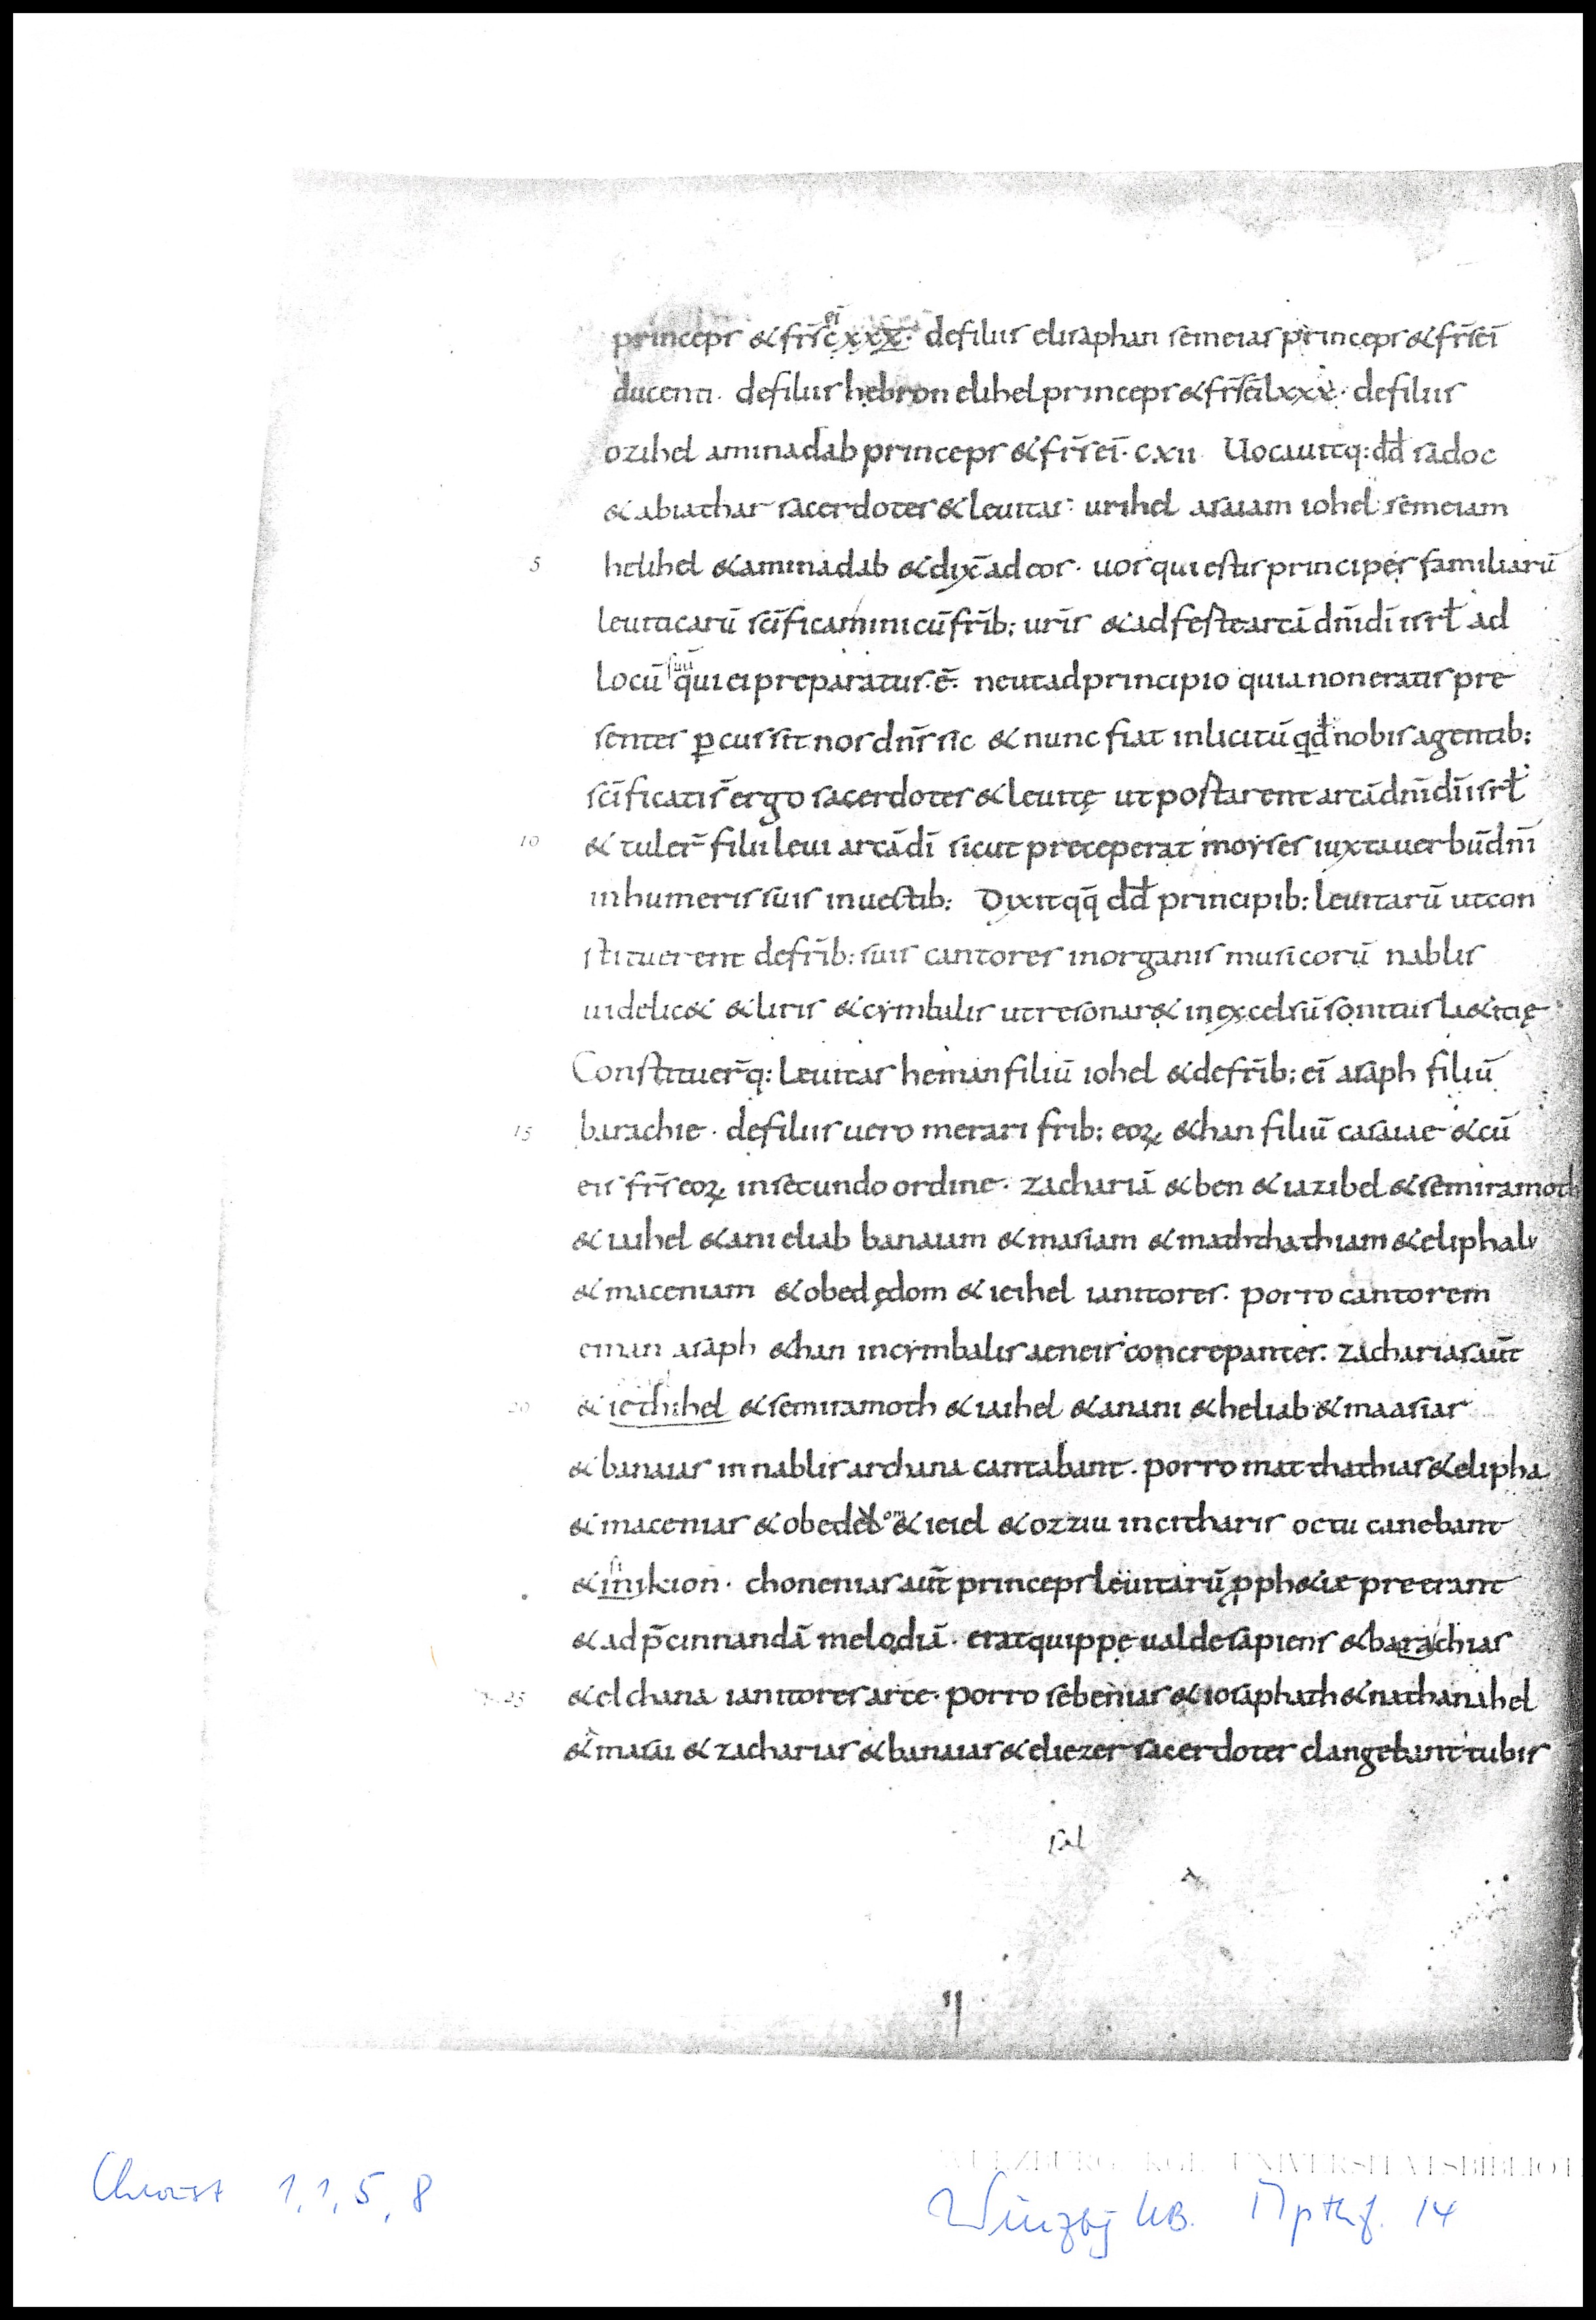 princeps & frs̄ ei c̄xxx · defiliis elisaphan semeias princeps & frs̄ eī
ducenti · defiliis hebron elihel princeps & frs̄ ei lxxx · defiliis
ozihel aminadab princeps & frs̄ eī · cxii Uocauitq: dd̄ sadoc
& abiathar sacerdotes & leuitas · urihel asaiam iohel semeiam
5 helihel & aminadab & dixt̄ ad eos · uos qui estis principes familiarū
leuiticarū scīficamini cū frīb; urīs & adferte arcā dnī dī isrł ad
Locū suū qui ei preparatus · ē · ne ut ad principio quia non eratis pre
sentes ꝑcussit nos dns̄ sic & nunc fiat inlicitū qd̄ nobis agentib;
scīficati s̄ ergo sacerdotes & leuitę ut portarent arcā dnī dī isrł
10 & tuler̄ filii leui arcā dī sicut preceperat moyses iuxta uerbū dnī
inhumeris suis inuectib; Dixitqq̄ dd̄ principib: leuitarū ut con
stituerent defrīb: suis cantores inorganis musicorū nablis
uidelic& & liris & cymbalis ut reson&ar& in excelsū sonitus l&itię
Constituer̄q: Leuitas heman filiū iohel & defrīb; eī asaph filiū
15 barachie · defiliis uero merari frib; eoꝝ &han filiū casaiae & cū
eis frs̄ eoꝝ insecundo ordine · zachariā & ben & iazibel & semiramoth
& iaihel & ani eliab banaiam & masiam & maththathiam & eliphalu
& maceniam & obed ędom & ieihel ianitores · porro cantorem
eman asaph &han incymbalis aeneis concrepantes · zacharias aut̄
20 & iethihel & semiramoth & iaihel & anani & heliab & maasias
& banaias in nablis archana cantabant · porro matthathias & elipha
& macenias & obededom & ieiel & ozziu incitharis octu canebant
& inikion · chonenias aut̄ princeps leuitarū, ꝓph&ie preerant
& ad p̄cinnandā melodiā · erat quippe ualde sapiens & barachias
25 & elchana ianitores arce · porro sebenias & iosaphath & nathanahel
& masai & zacharias & banaias & eliezer sacerdotes clangebant tubis
sal
WÜRZBURG KGL. UNIVERSITÄTSBIBLIOT
Christ 1, 1, 5, 8
Würzbg UB. Mpthf. 14